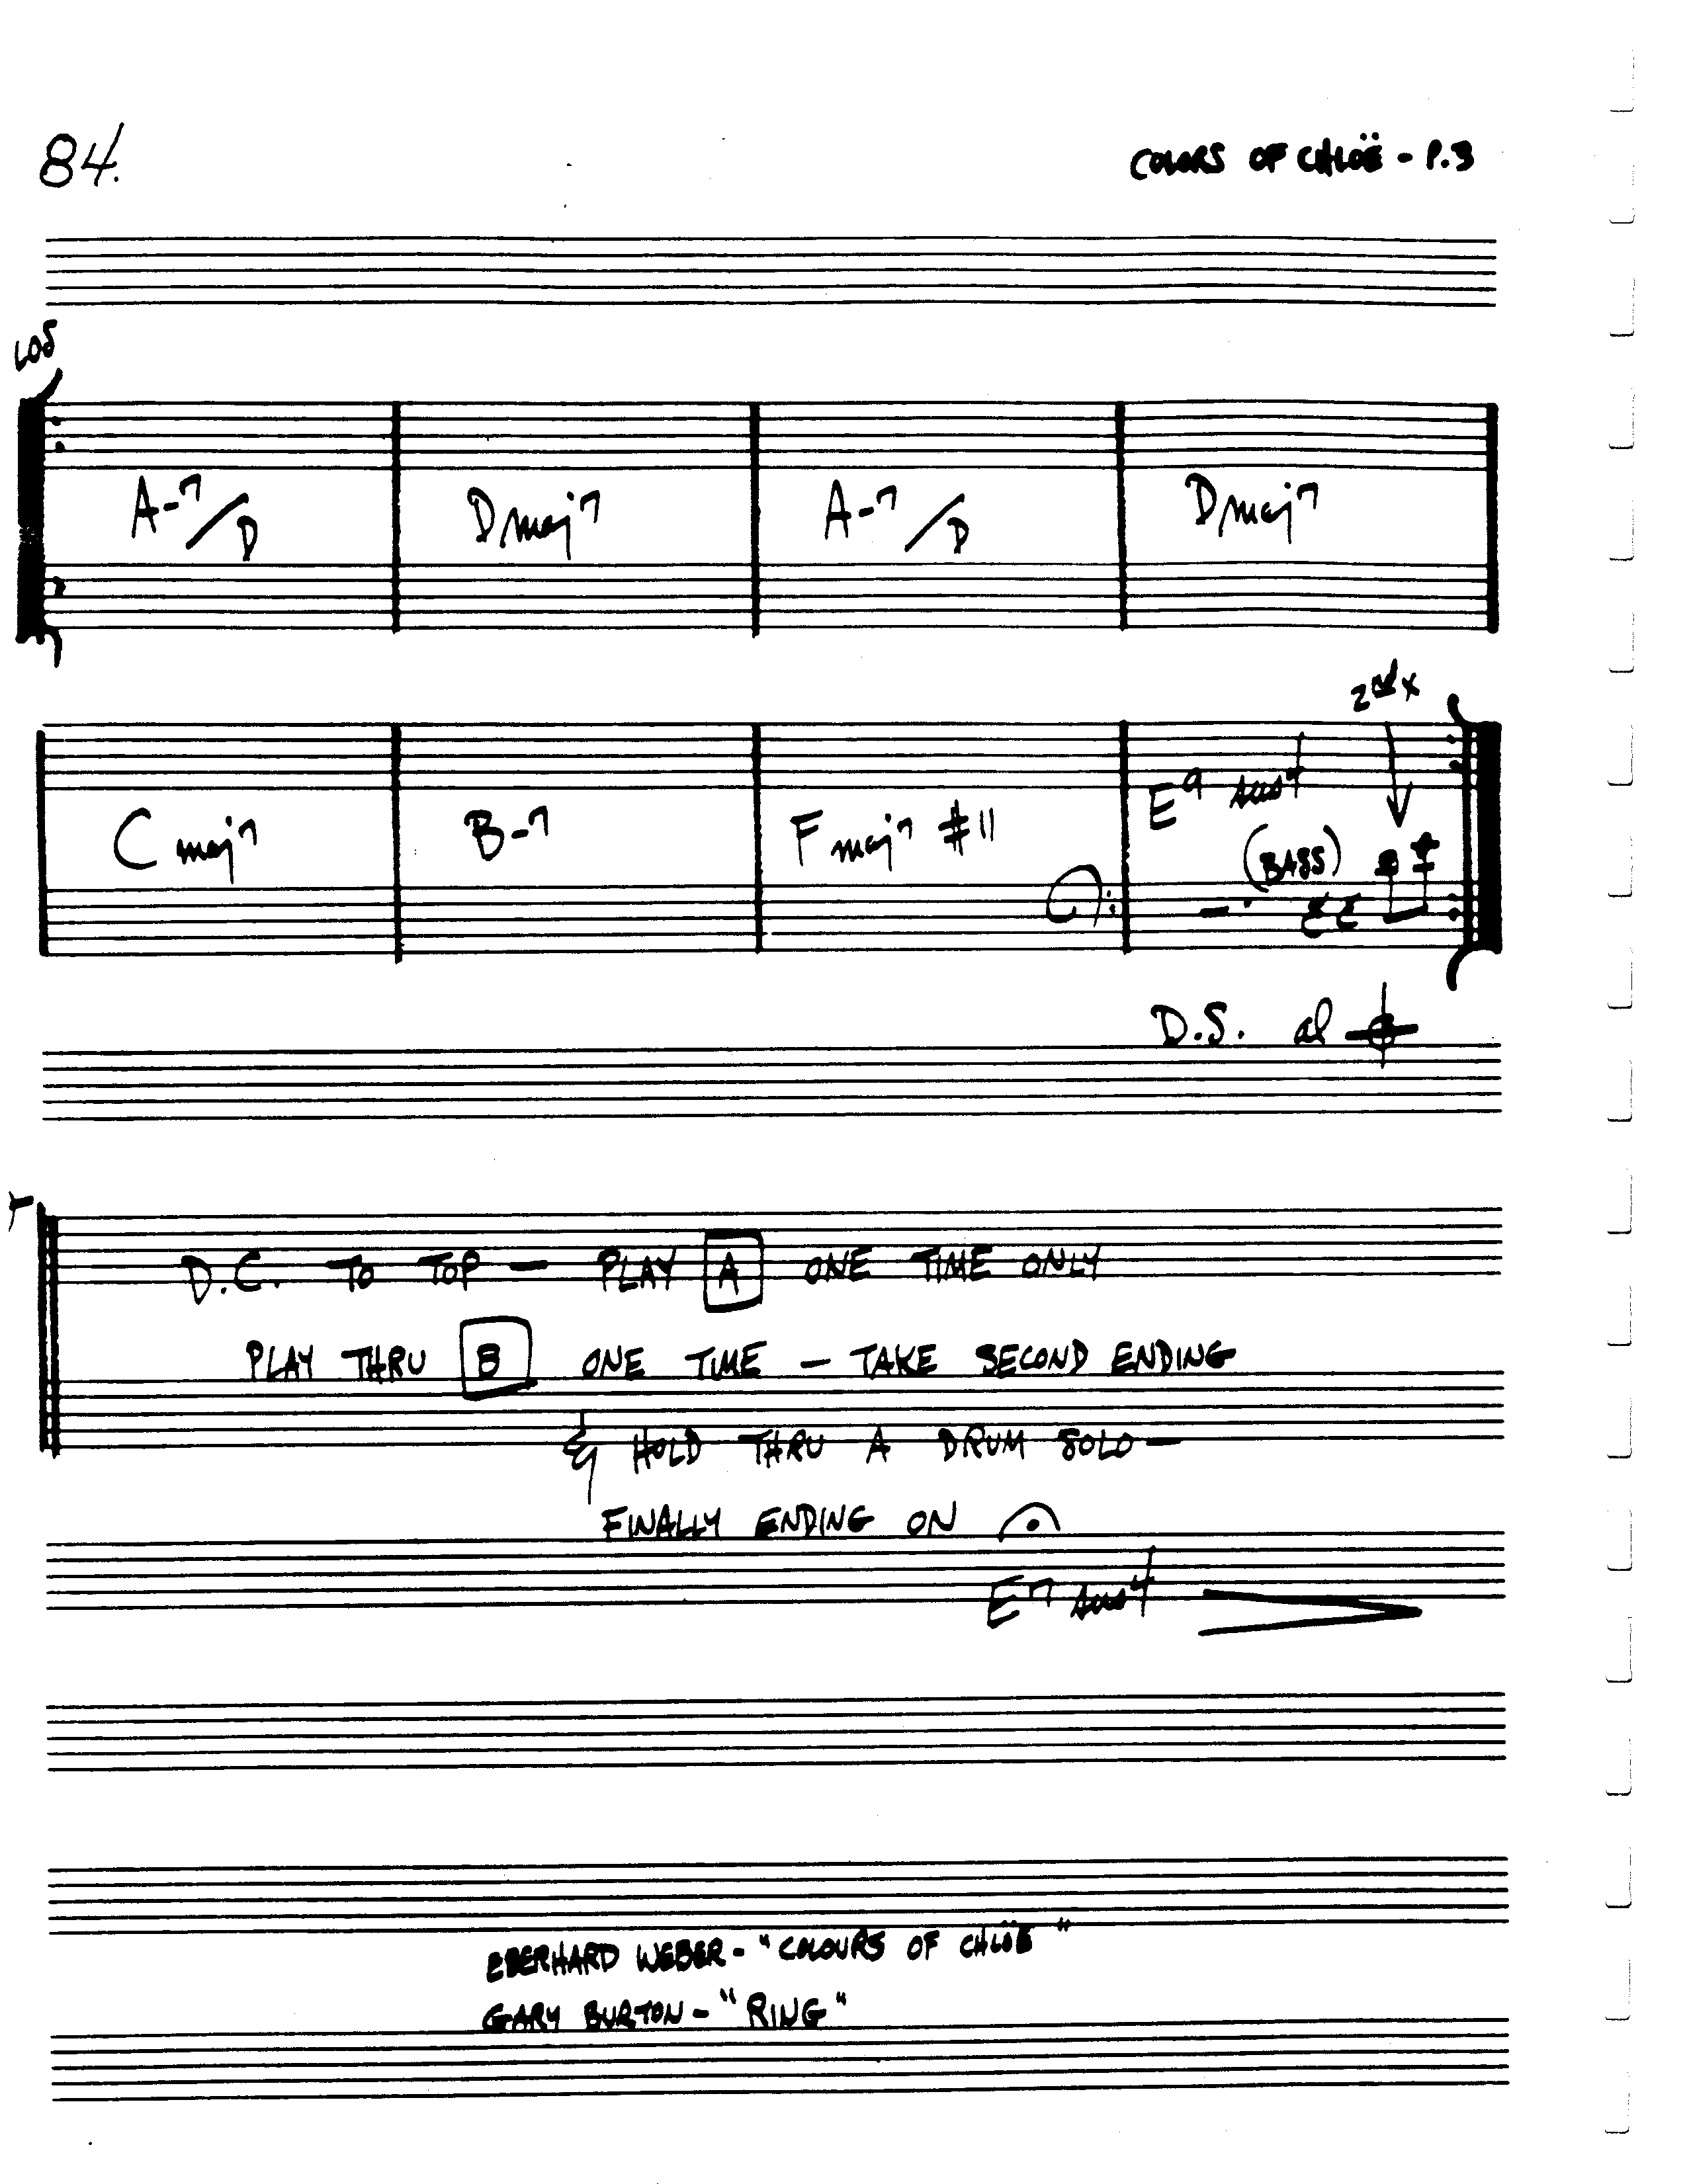 84.
COLORS OF CHLOË - P.3
A-7/D Dmaj7 A-7/D Dmaj7
2nd x
Cmaj7 B-7 Fmaj7 #11 E9 sus4
(BASS)
D.S. al
D.C. TO TOP — PLAY A ONE TIME ONLY
PLAY THRU B ONE TIME — TAKE SECOND ENDING
& HOLD THRU A DRUM SOLO —
FINALLY ENDING ON
E7 sus4
EBERHARD WEBER - "COLOURS OF CHLOË"
GARY BURTON - "RING"